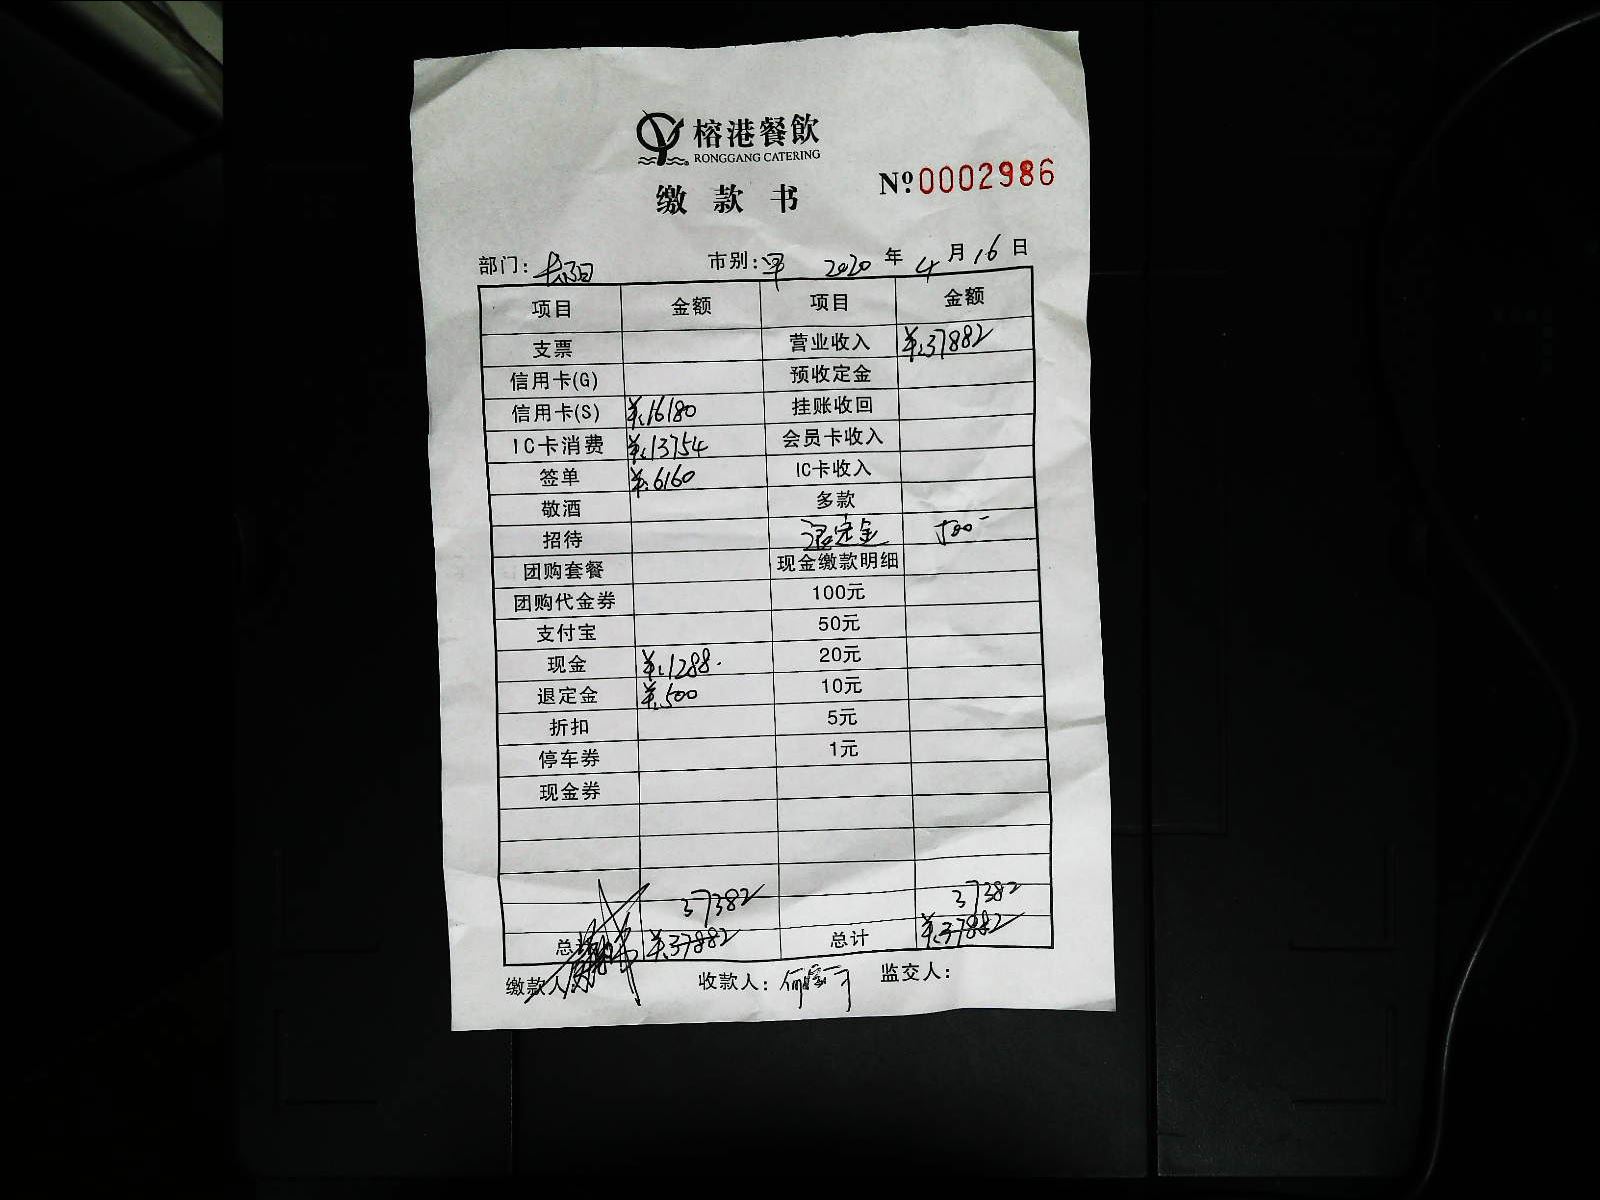 榕港餐飲
RONGGANG CATERING
缴款书
Nº 0002986
部门: 长阳 市别: 2020 年 4 月 16 日
项目 金额 项目 金额
支票 营业收入 ¥:37882
信用卡(G) 预收定金
信用卡(S) ¥:16180 挂账收回
IC卡消费 ¥:13754 会员卡收入
签单 ¥:6160 IC卡收入
敬酒 多款
招待 退定金 500-
团购套餐 现金缴款明细
团购代金券 100元
支付宝 50元
现金 ¥:1288. 20元
退定金 ¥:500 10元
折扣 5元
停车券 1元
现金券
37382 37382
总计 ¥:37882 总计 ¥:37882
缴款人 收款人: 监交人: